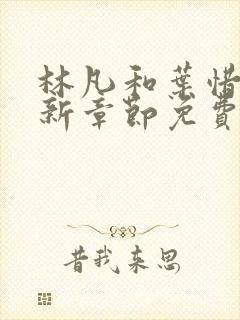 林凡和葉惜
新章節免費
昔我来思